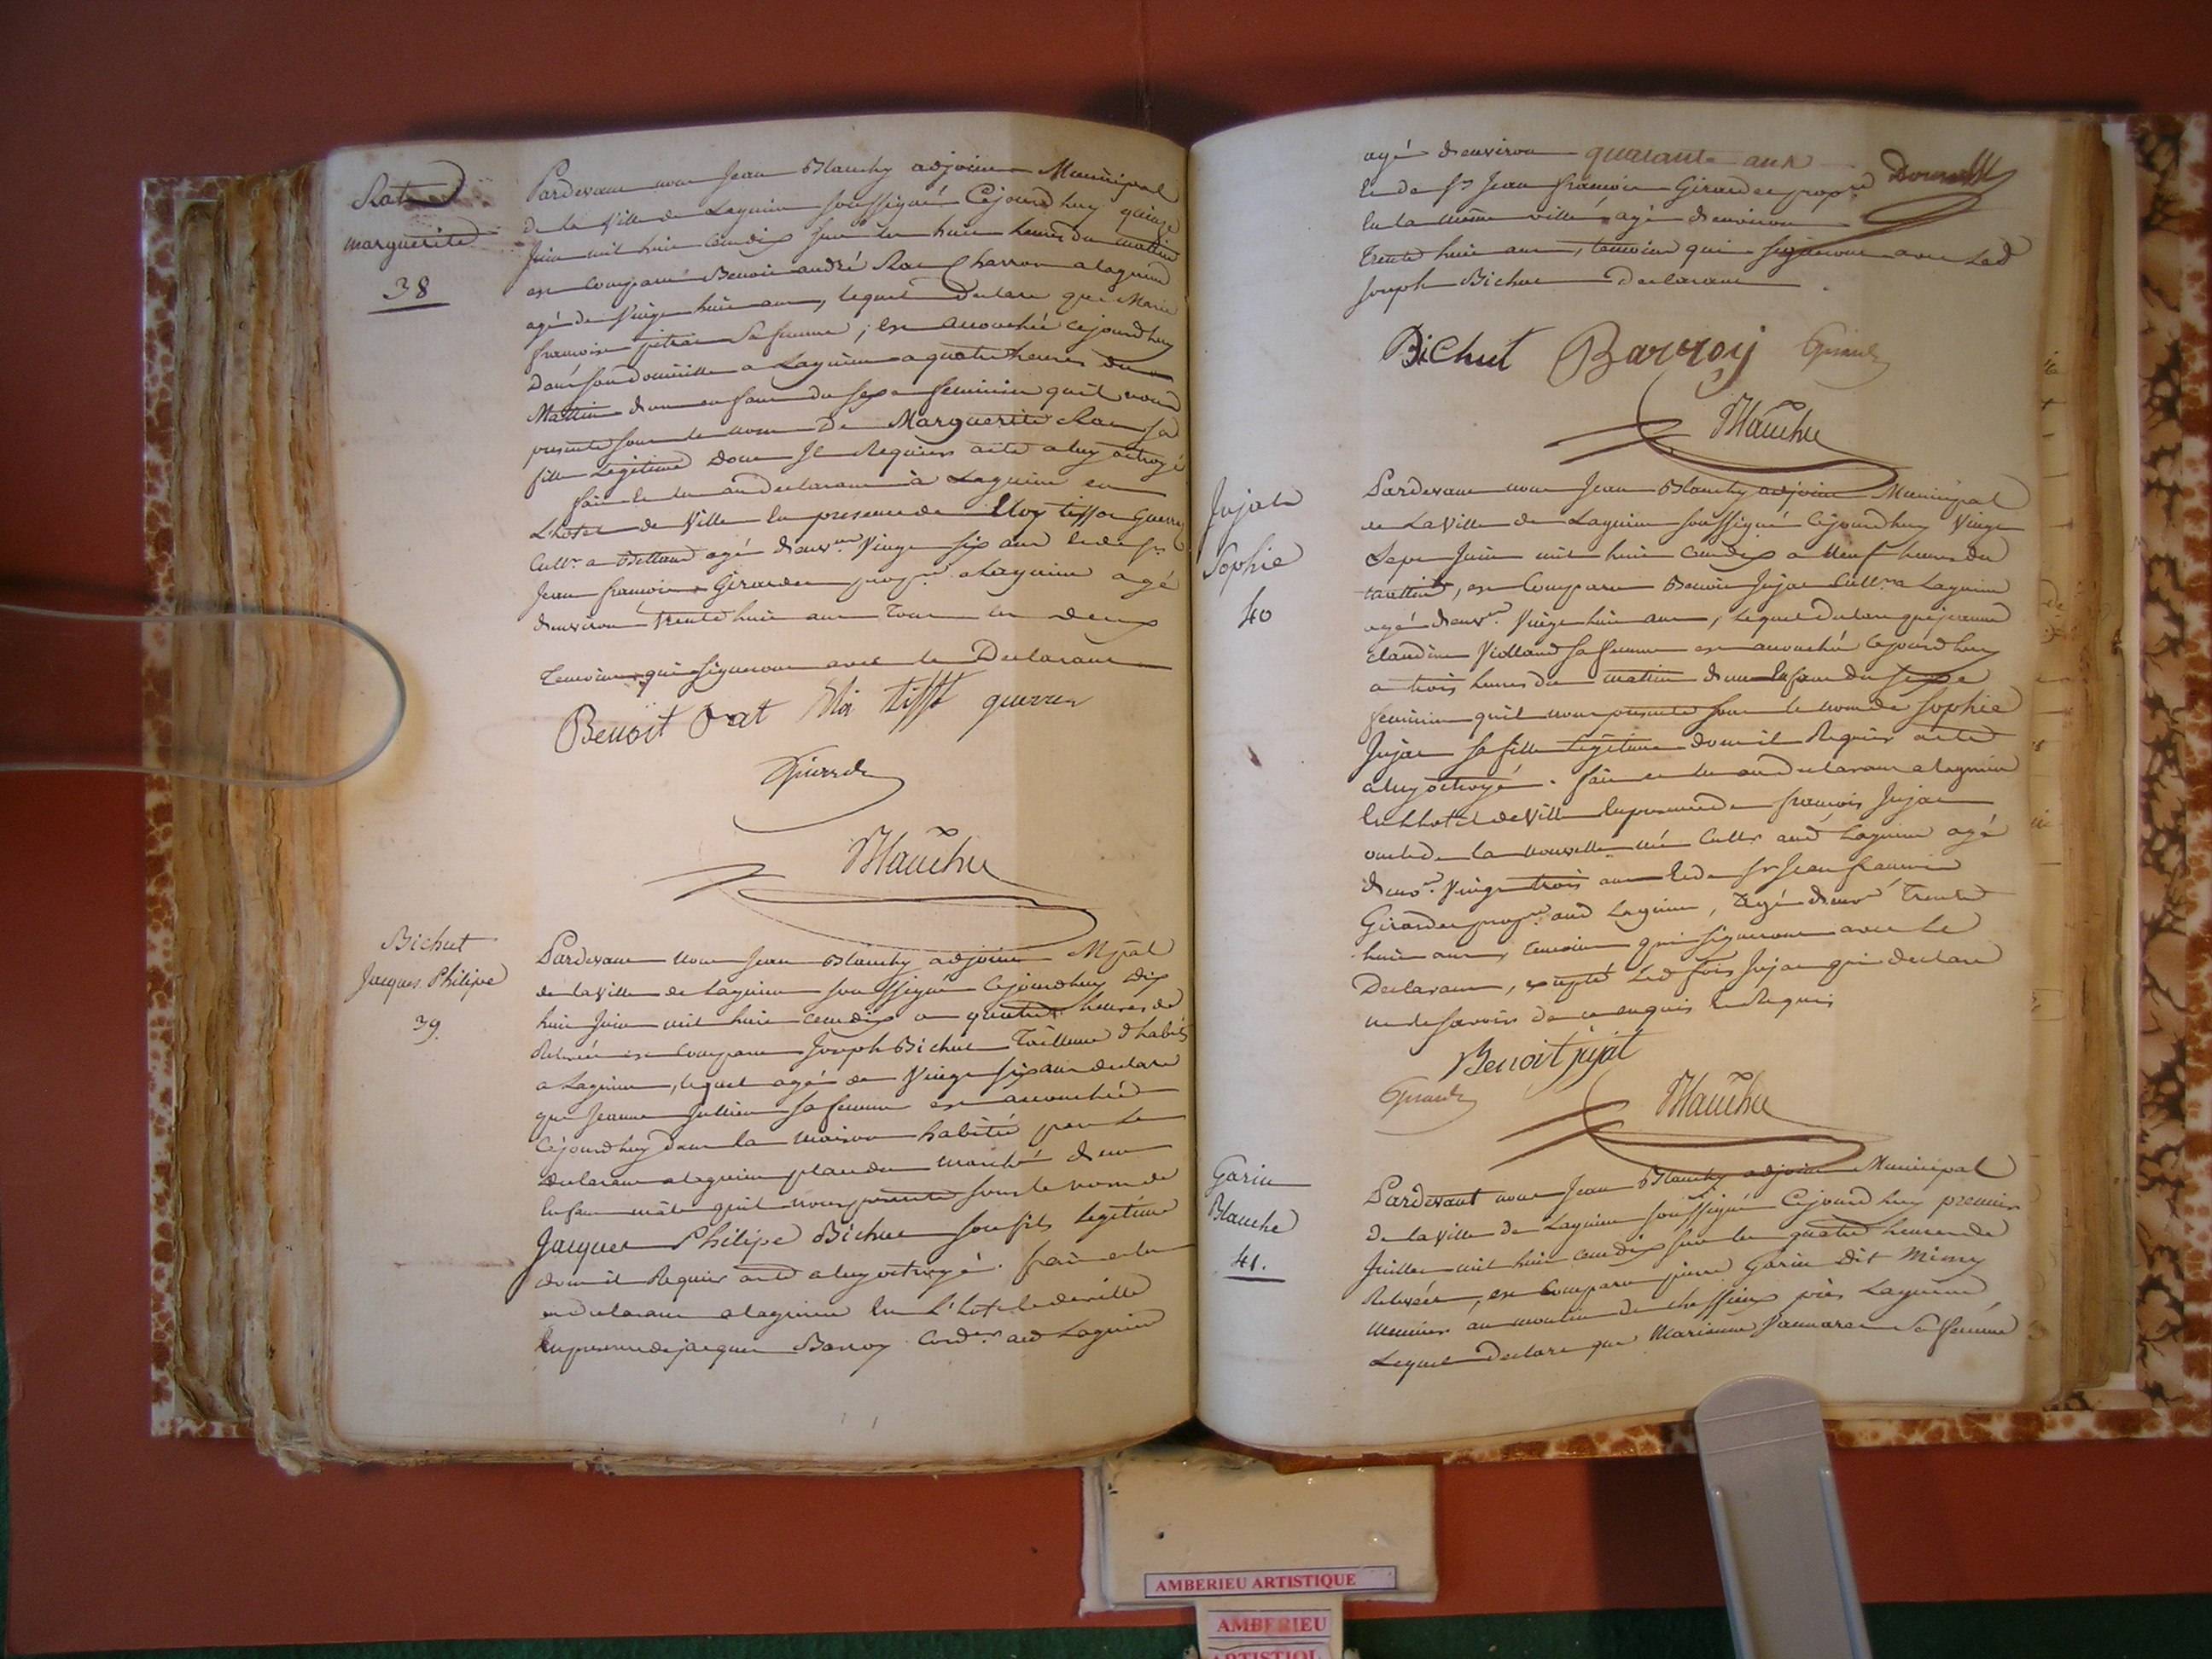 Rat
marguerite
38
Pardevant nous Jean Blanchy adjoint Municipal
de la Ville de Lagnieu soussigné Cejourd'huy quinze
Juin mil huit cent dix sur les huit heures du mattin
est comparu Benoit andré Rat Charron a lagnieu
agé de Vingt huit ans, lequel Declare que Marie
francoise sa femme, est accouchée cejourd'huy
Dans son domicille a Lagnieu a quatre heures du
Mattin d'un enfant du sexe feminin qu'il nous
presente sous le nom De Marguerite Rat sa
fille Legitime Dont Il Requiert acte a luy octroyé
fait et lu au Declarant à Lagnieu en
L'hotel de Ville en presence de Eloy tissot Guerre
Cultr. a agé d'environ Vingt six ans et de sr
Jean francois Girardet propre. a Lagnieu agé
d'environ trente huit ans Tous les deux
Temoins qui signeront avec le Declarant
Benoit rat Eloi tissot guerre
Girardet
Blanchy
Bichut
Jacques Philipe
39.
Pardevant nous Jean Blanchy adjoint Mpal
de la Ville de Lagnieu soussigné Cejourdhuy dix
huit Juin mil huit cent dix a quatre heures de
Relevée est comparu Joseph Bichut Tailleur d'habits
a Lagnieu, lequel agé de Vingt six ans declare
que Jeanne Jullien sa femme est accouchée
Cejourdhuy dans la maison habitée par le
Declarant a lagnieu place du marché d'un
enfant mâle qu'il nous presente sous le nom de
Jacques Philipe Bichut son fils legitime
dont il Requiert acte a luy octroyé. fait et lu
au declarant a lagnieu en L'hotel de ville
en presence de jacques Barroy Cordr. aud Lagnieu
agé d'environ quarante ans
et de sr Jean francois Girardet propre.
en la même ville, agé d'environ
trente huit ans, temoins qui signeront avec Led
Joseph Bichut Declarant.
Bichut Barroy Girardet
Blanchy
Jujat
Sophie
40
Pardevant nous Jean Blanchy adjoint Municipal
de La Ville de Lagnieu soussigné Cejourdhuy Vingt
Sept Juin mil huit cent dix a Neuf heures du
mattin, est Comparu Benoit Jujat Cultr. a Lagnieu
agé d'envn. Vingt huit ans, lequel declare que jeanne
claudine Violland sa femme est accouchée Cejourdhuy
a trois heures du mattin d'un enfant du sexe
feminin quil nous presente sous le nom de Sophie
Jujat sa fille legitime dont il Requiert acte
a luy octroyé. fait et lu au Declarant a lagnieu
en Lhotel de Ville en presence de francois Jujat
oncle de la nouvelle née Cultr aud Lagnieu agé
d'envn. Vingt trois ans et de sr Jean francois
Girardet propre aud Lagnieu, agé d'envn Trente
huit ans, temoins qui signeront avec Le
Declarant, excepté Led fois Jujat qui declare
ne le savoir de ce enquis et Requis
Benoit jujat
Girardet Blanchy
Garin
Blanche
41.
Pardevant nous Jean Blanchy adjoint Municipal
de la Ville de Lagnieu soussigné Cejourd'huy premier
Juillet mil huit cent dix sur les quatre heures de
Relevée, est Comparu pierre Garin Dit Mimy
Meunier au moulin de près Lagnieu,
Lequel Declare que Marianne Sa femme
AMBERIEU ARTISTIQUE
AMBERIEU
ARTISTIQ